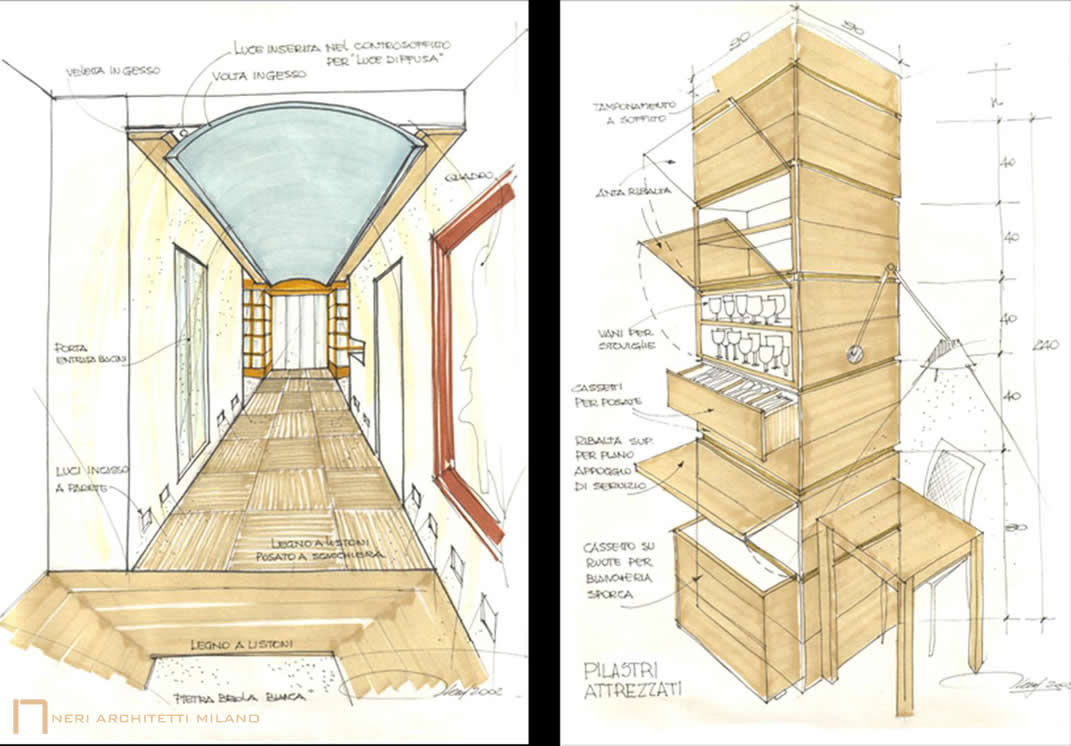 LUCE INSERITA NEL CONTROSOFFITTO
PER "LUCE DIFFUSA"
VELETTA IN GESSO
VOLTA IN GESSO
QUADRO
PORTA
ENTRATA BAGNI
LUCI INCASSO
A PARETE
LEGNO A LISTONI
POSATO A SCACCHIERA
LEGNO A LISTONI
"PIETRA BIANCA"
2002
NERI ARCHITETTI MILANO
90
90
TAMPONAMENTO
A SOFFITTO
ANTA RIBALTA
VANI PER
STOVIGLIE
CASSETTI
PER POSATE
RIBALTA SUP.
PER PIANO
APPOGGIO
DI SERVIZIO
CASSETTO SU
RUOTE PER
BIANCHERIA
SPORCA
40
40
40
40
80
240
PILASTRI
ATTREZZATI